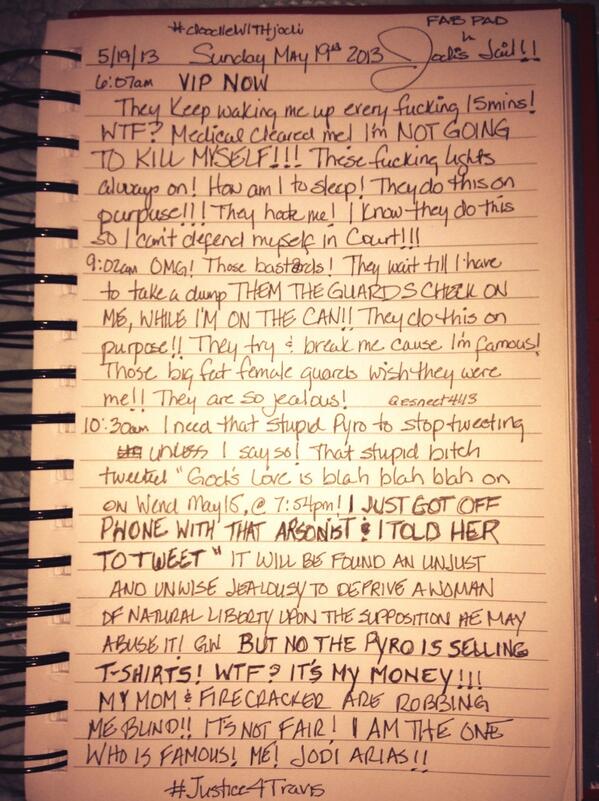 #doodleWITHjodi
FAB PAD
5/19/13 Sunday May 19th 2013 Jodi's Jail!!
6:07am VIP NOW
They Keep waking me up every fucking 15mins!
WTF? Medical cleared me! I'm NOT GOING
TO KILL MYSELF!!! These fucking lights
always on! How am I to sleep! They do this on
purpose!!! They hate me! I know they do this
so I can't defend myself in Court!!!
9:02am OMG! Those bastards! They wait till I have
to take a dump THEM THE GUARDS CHECK ON
ME, WHILE I'M ON THE CAN!! They do this on
purpose!! They try & break me cause I'm famous!
Those big fat female guards wish they were
me!! They are so jealous! @esnect4113
10:30am I need that stupid Pyro to stop tweeting
unless I say so! That stupid bitch
tweeted "God's Love is blah blah blah on
on Wend May 15, @ 7:54pm! I JUST GOT OFF
PHONE WITH THAT ARSONIST & I TOLD HER
TO TWEET "IT WILL BE FOUND AN UNJUST
AND UNWISE JEALOUSY TO DEPRIVE A WOMAN
OF NATURAL LIBERTY UPON THE SUPPOSITION HE MAY
ABUSE IT! GW BUT NO THE PYRO IS SELLING
T-SHIRTS! WTF? IT'S MY MONEY!!!
MY MOM & FIRECRACKER ARE ROBBING
ME BLIND!! IT'S NOT FAIR! I AM THE ONE
WHO IS FAMOUS! ME! JODI ARIAS!!
#Justice4Travis